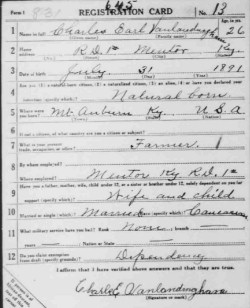 Form 1 REGISTRATION CARD No. 13
645
1 Name in full Charles Earl Vanlandingham Age, in yrs. 26
2 Home address R.D. 1 Mentor Ky.
3 Date of birth July 31 1891
4 Are you (1) a natural-born citizen, (2) a naturalized citizen, (3) an alien, (4) or have you declared your intention (specify which)? Natural born
5 Where were you born? Mt Auburn Ky U.S.A
6 If not a citizen, of what country are you a citizen or subject?
7 What is your present trade, occupation, or office? Farmer 1
8 By whom employed?
Where employed? Mentor Ky R.D. 1
9 Have you a father, mother, wife, child under 12, or a sister or brother under 12, solely dependent on you for support (specify which)? Wife and child
10 Married or single (which)? Married Race (specify which)? Caucasian
11 What military service have you had? Rank None branch
years Nation or State
12 Do you claim exemption from draft (specify grounds)? Dependency
I affirm that I have verified above answers and that they are true.
Charles E Vanlandingham
(Signature or mark)